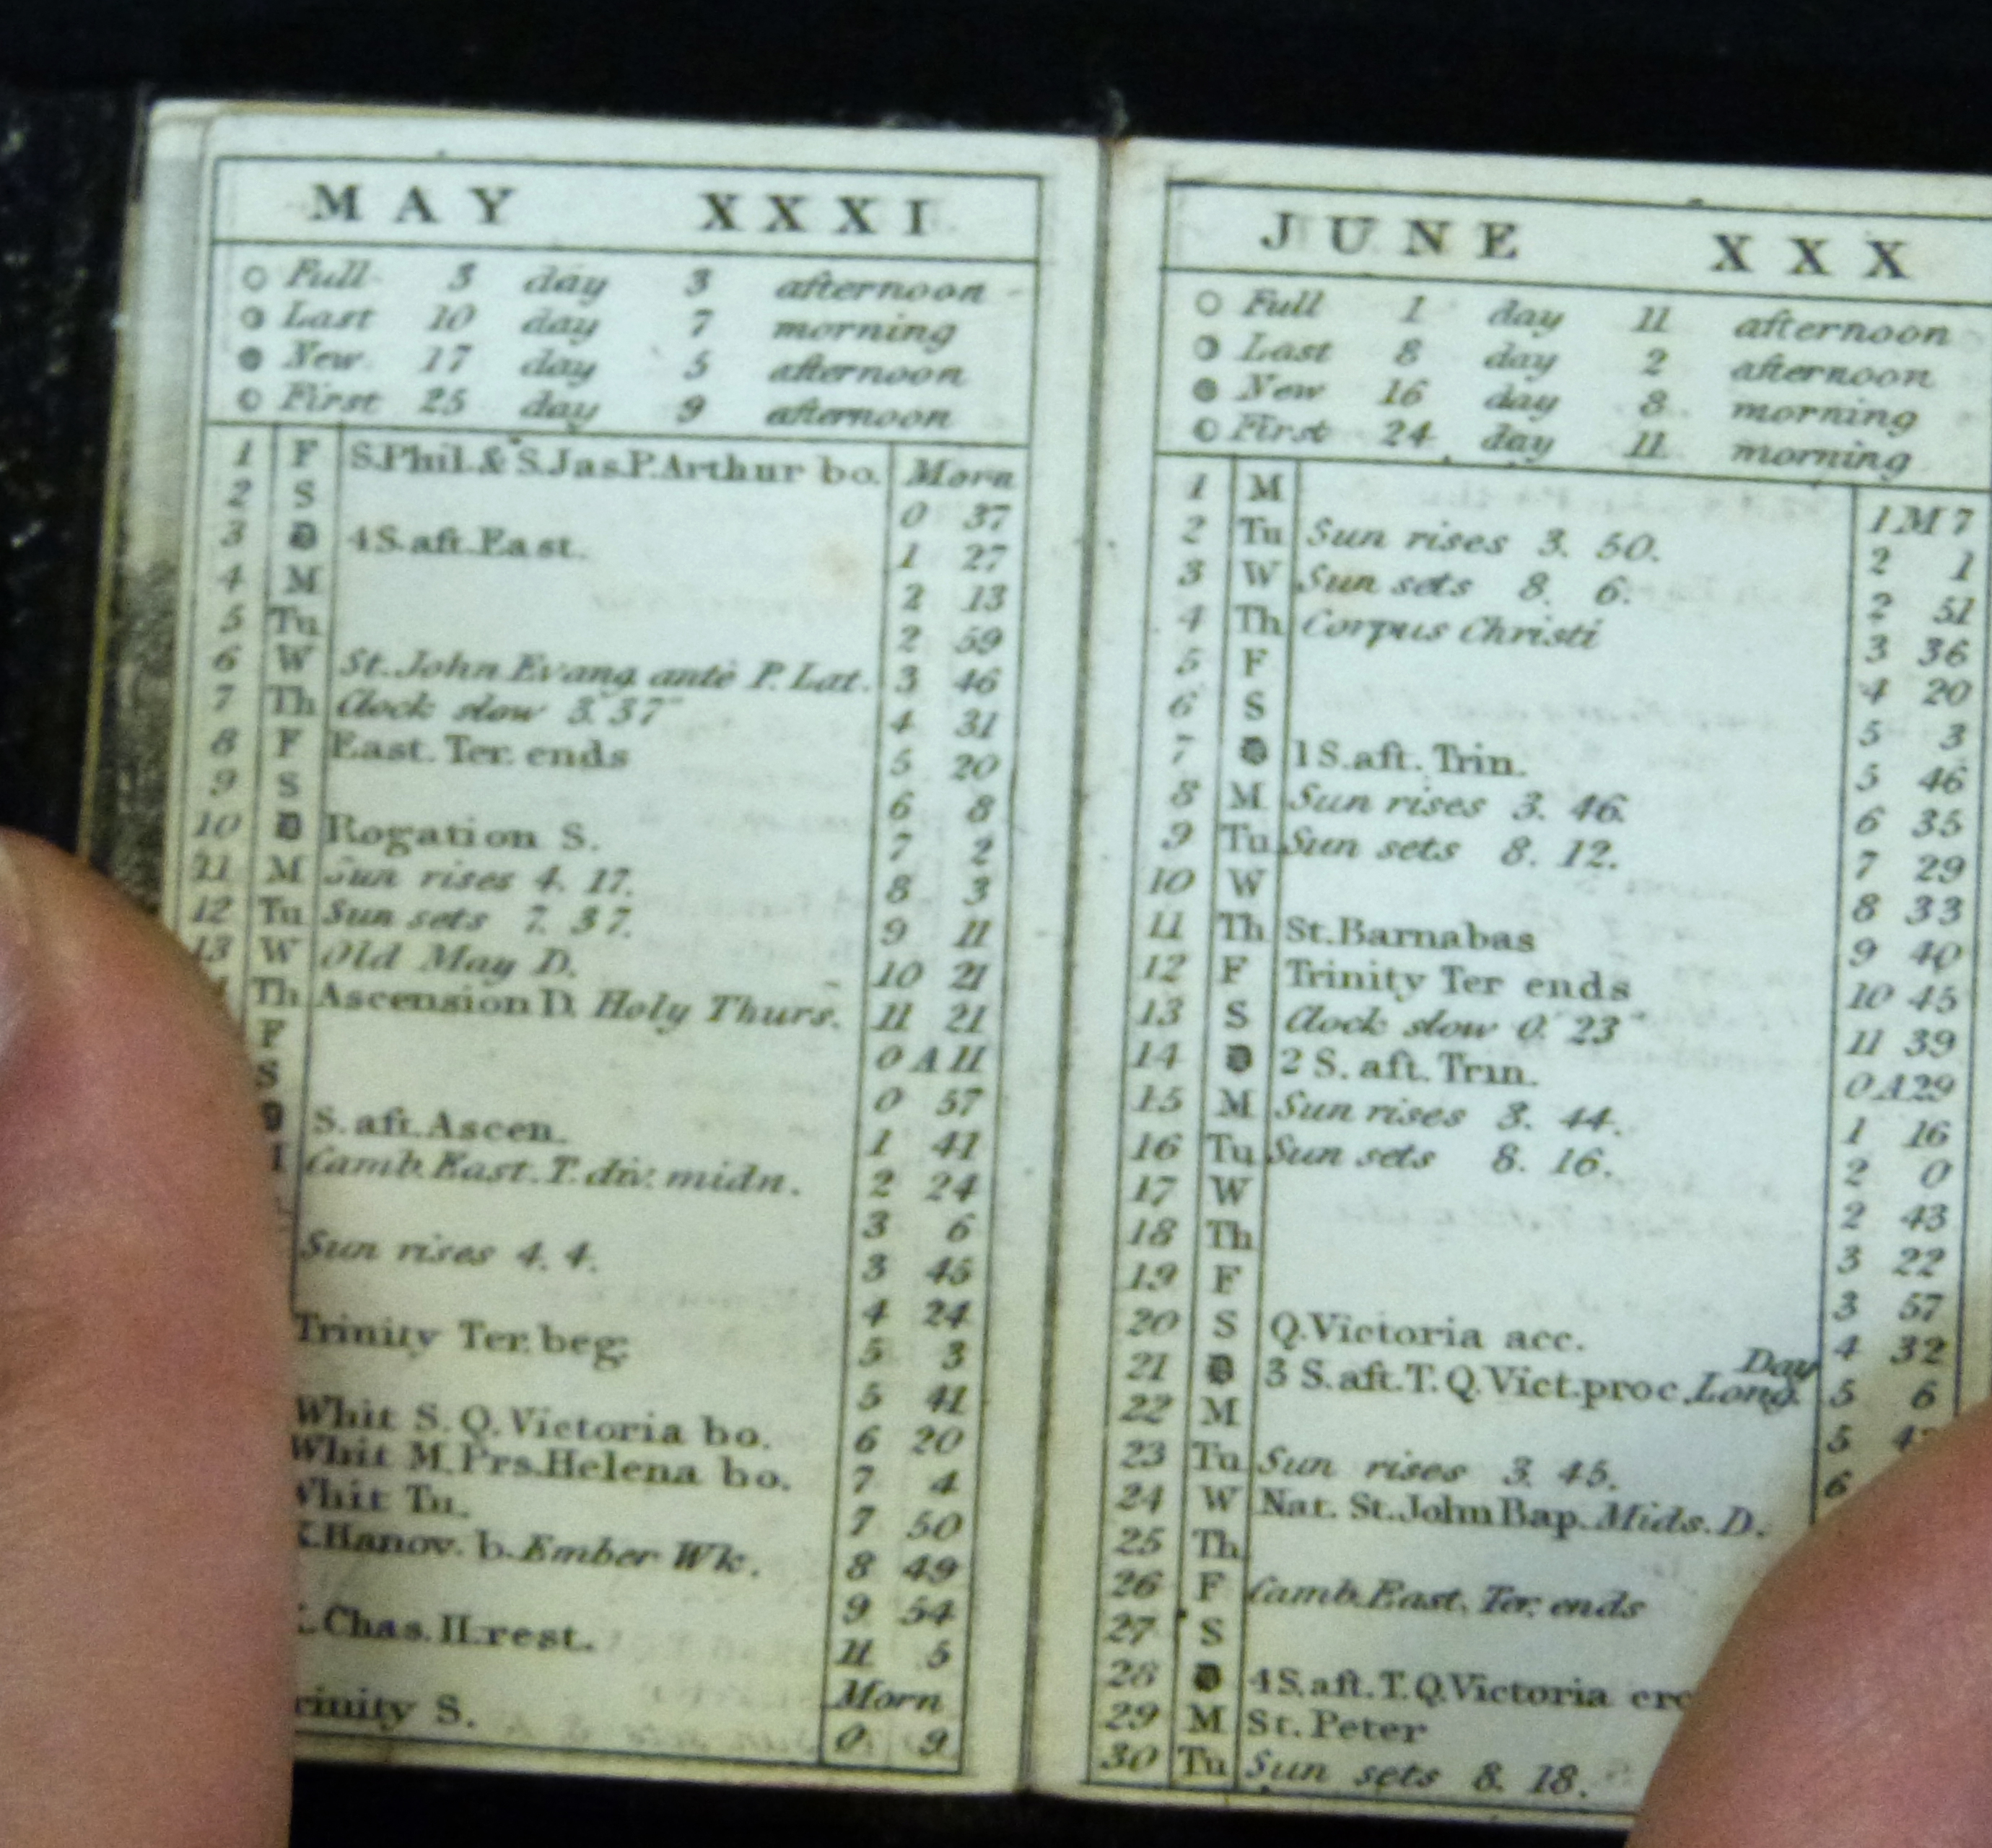 MAY XXXI
Full 3 day 3 afternoon
Last 10 day 7 morning
New 17 day 5 afternoon
First 25 day 9 afternoon
1 F S.Phil.& S.Jas.P.Arthur bo. Morn
2 S 0 37
3 D 4 S.aft.East. 1 27
4 M 2 13
5 Tu 2 59
6 W St.John Evang ante P. Lat. 3 46
7 Th Clock slow 3. 37" 4 31
8 F East. Ter. ends 5 20
9 S 6 8
10 D Rogation S. 7 2
11 M Sun rises 4. 17. 8 3
12 Tu Sun sets 7. 37. 9 11
13 W Old May D. 10 21
Th Ascension D. Holy Thurs. 11 21
F 0 A 11
S 0 57
D S. aft.Ascen. 1 41
Camb.East.T.div.midn. 2 24
3 6
Sun rises 4. 4. 3 45
4 24
Trinity Ter.beg: 5 3
5 41
Whit S. Q.Victoria bo. 6 20
Whit M.Prs.Helena bo. 7 4
Whit Tu. 7 50
K.Hanov. b.Ember Wk. 8 49
9 54
K.Chas.II.rest. 11 5
Morn
Trinity S. 0 9
JUNE XXX
Full 1 day 11 afternoon
Last 8 day 2 afternoon
New 16 day 8 morning
First 24 day 11 morning
1 M 1M7
2 Tu Sun rises 3. 50. 2 1
3 W Sun sets 8. 6. 2 51
4 Th Corpus Christi 3 36
5 F 4 20
6 S 5 3
7 D 1 S.aft. Trin. 5 46
8 M Sun rises 3. 46. 6 35
9 Tu Sun sets 8. 12. 7 29
10 W 8 33
11 Th St.Barnabas 9 40
12 F Trinity Ter ends 10 45
13 S Clock slow 0. 23" 11 39
14 D 2 S. aft. Trin. 0A29
15 M Sun rises 3. 44. 1 16
16 Tu Sun sets 8. 16. 2 0
17 W 2 43
18 Th 3 22
19 F 3 57
20 S Q.Victoria acc. 4 32
21 D 3 S.aft.T.Q.Vict.proc.Long. Day 5 6
22 M 5
23 Tu Sun rises 3. 45. 6
24 W Nat. St.John Bap.Mids.D.
25 Th
26 F Camb.East. Ter. ends
27 S
28 D 4 S.aft.T.Q.Victoria cro
29 M St.Peter
30 Tu Sun sets 8. 18.